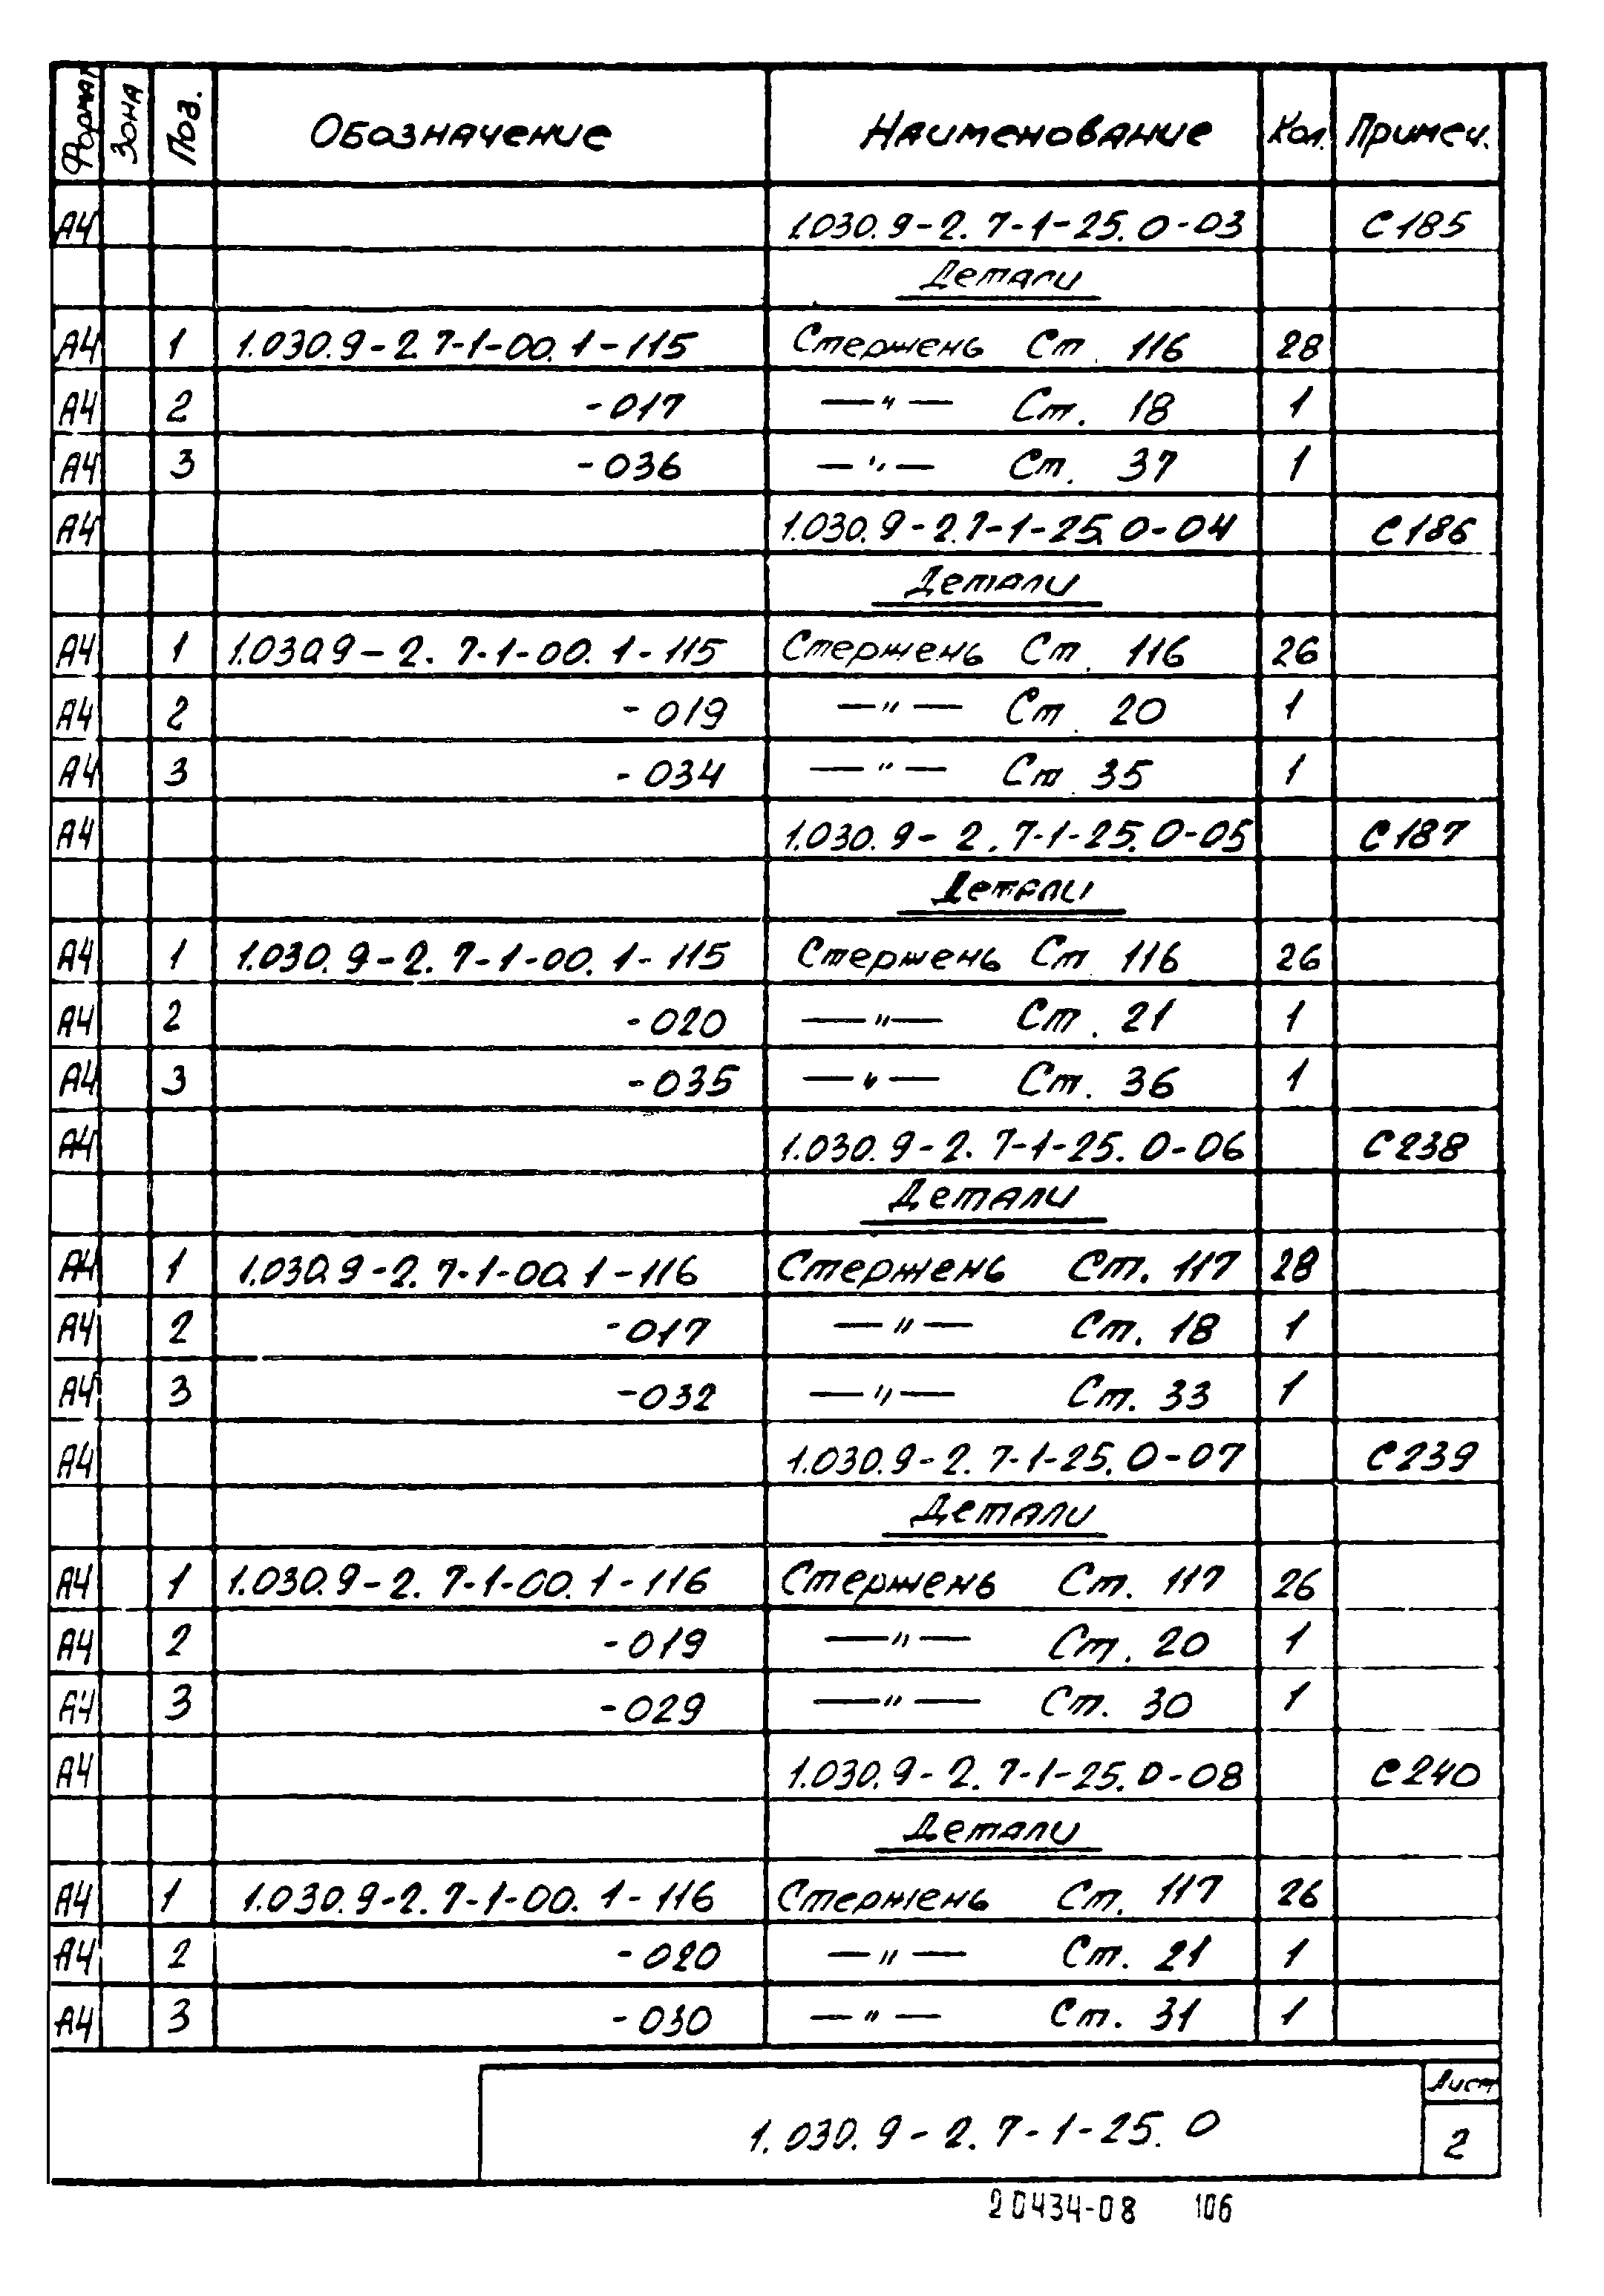 Формат Зона Поз. Обозначение Наименование Кол. Примеч.
А4 1.030.9-2.7-1-25.0-03 С185
Детали
А4 1 1.030.9-2.7-1-00.1-115 Стержень Ст. 116 28
А4 2 -017 —"— Ст. 18 1
А4 3 -036 —"— Ст. 37 1
А4 1.030.9-2.7-1-25.0-04 С186
Детали
А4 1 1.030.9-2.7-1-00.1-115 Стержень Ст. 116 26
А4 2 -019 —"— Ст. 20 1
А4 3 -034 —"— Ст. 35 1
А4 1.030.9-2.7-1-25.0-05 С187
Детали
А4 1 1.030.9-2.7-1-00.1-115 Стержень Ст 116 26
А4 2 -020 —"— Ст. 21 1
А4 3 -035 —"— Ст. 36 1
А4 1.030.9-2.7-1-25.0-06 С238
Детали
А4 1 1.030.9-2.7-1-00.1-116 Стержень Ст. 117 28
А4 2 -017 —"— Ст. 18 1
А4 3 -032 —"— Ст. 33 1
А4 1.030.9-2.7-1-25.0-07 С239
Детали
А4 1 1.030.9-2.7-1-00.1-116 Стержень Ст. 117 26
А4 2 -019 —"— Ст. 20 1
А4 3 -029 —"— Ст. 30 1
А4 1.030.9-2.7-1-25.0-08 С240
Детали
А4 1 1.030.9-2.7-1-00.1-116 Стержень Ст. 117 26
А4 2 -020 —"— Ст. 21 1
А4 3 -030 —"— Ст. 31 1
Лист
1.030.9-2.7-1-25.0 2
20434-08 106